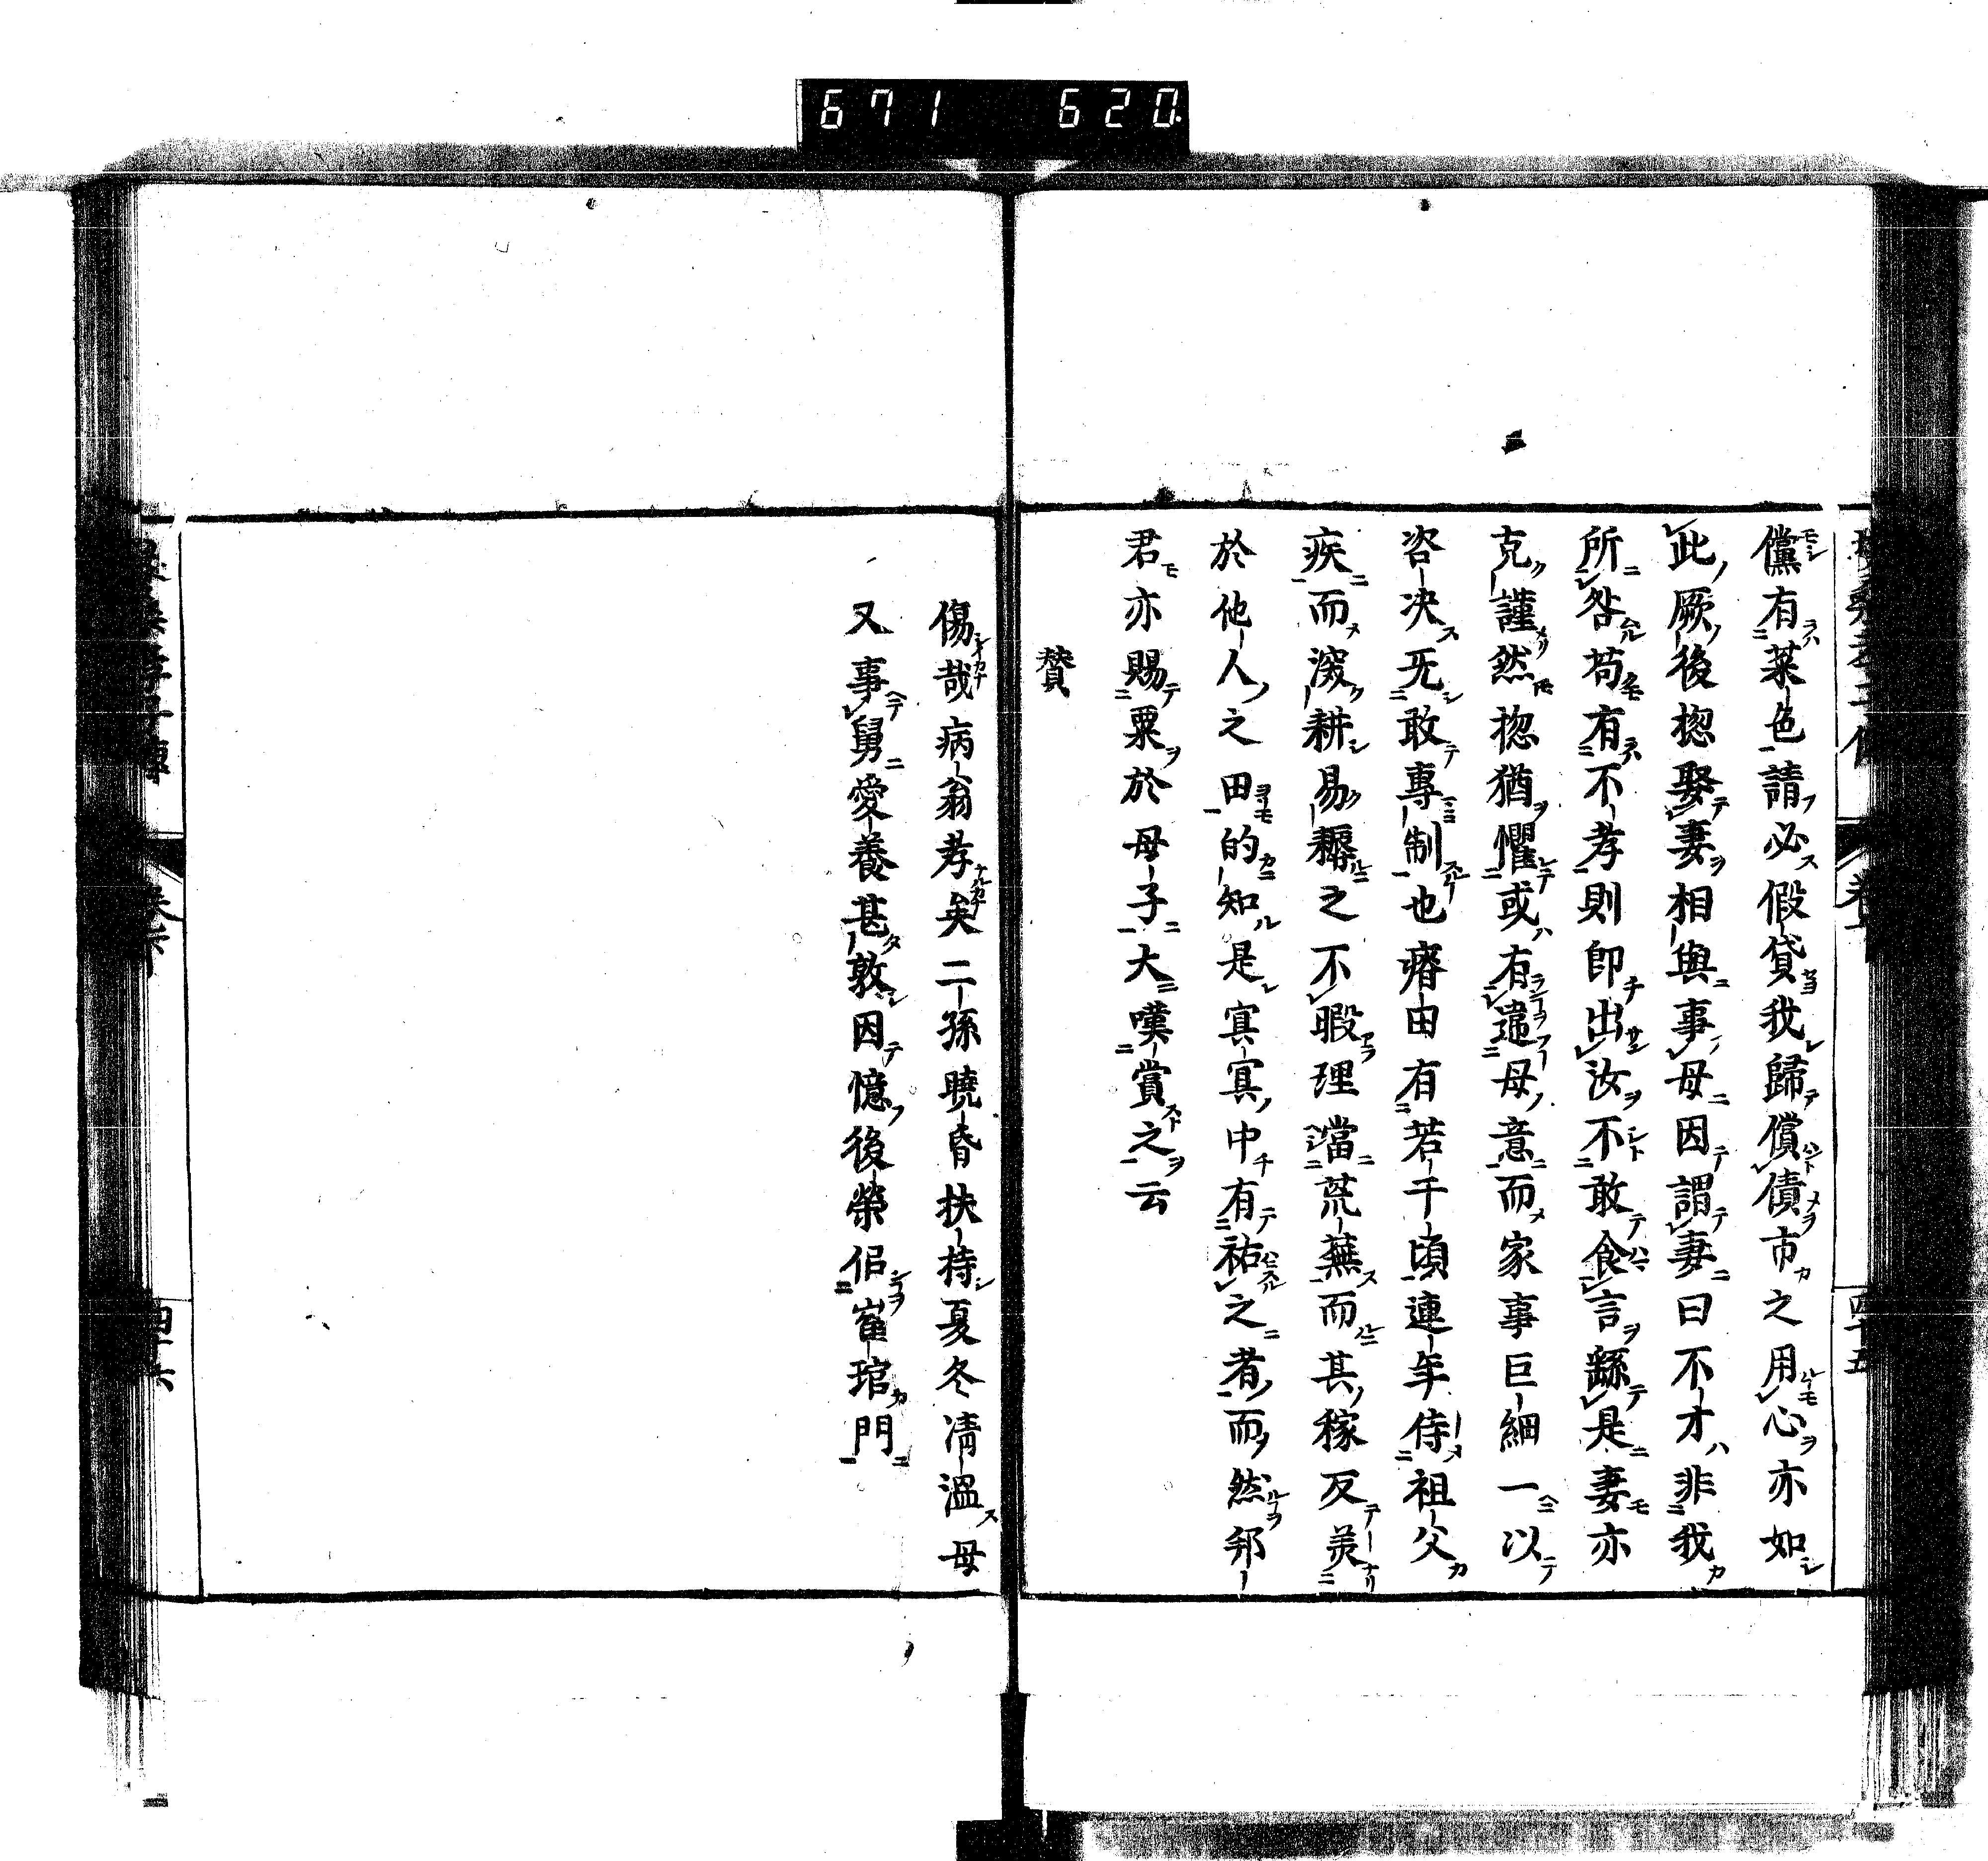 671 620
儻有菜色請必假貸我歸償債市之用心亦如
此厥後揔娶妻相與事母因謂妻曰不才非我
所咎苟有不孝則即出汝不敢食言繇是妻亦
克謹然揔猶懼或有違母意而家事巨細一以
咨决无敢專制也瘠田有若干頃連年侍祖父
疾而深耕易耨之不暇理當荒蕪而其稼反美
於他人之田的知是寞寞中有祐之者而然邦
君亦賜粟於母子大嘆賞之云
賛
傷哉病翁孝矣二孫曉昏扶持夏冬凊溫母
又事舅愛養甚敦因憶後榮佀崔琯門
卷六
四十六